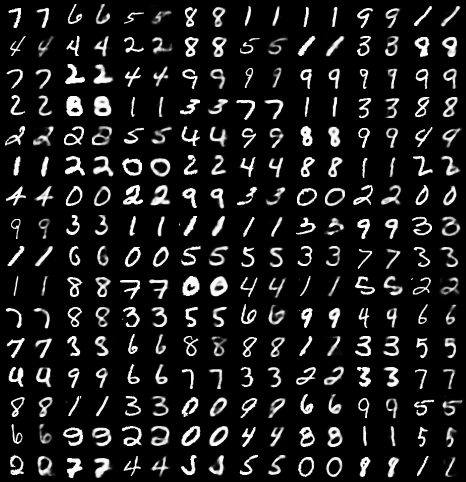 7 7 6 6 5 5 8 8 1 1 1 1 9 9 1 1
4 4 4 4 2 2 8 8 5 5 1 1 3 3 9 9
7 7 2 2 4 4 9 9 9 9 9 9 9 9 9 9
2 2 8 8 1 1 3 3 7 7 1 1 3 3 8 8
2 2 2 2 5 5 4 4 9 9 8 8 9 9 4 4
1 1 2 2 0 0 2 2 4 4 8 8 1 1 2 2
4 4 0 0 2 2 9 9 3 3 0 0 2 2 0 0
9 9 3 3 1 1 1 1 1 1 3 3 9 9 3 3
1 1 6 6 0 0 5 5 5 5 3 3 7 7 3 3
1 1 8 8 7 7 0 0 4 4 1 1 5 5 2 2
7 7 8 8 3 3 5 5 6 6 9 9 4 9 6 6
7 7 3 3 6 6 8 8 8 8 1 1 3 3 5 5
4 4 9 9 6 6 7 7 3 3 2 2 3 3 7 7
8 8 1 1 3 3 0 0 9 9 6 6 9 9 5 5
6 6 9 9 2 2 0 0 4 4 8 8 1 1 5 5
2 2 7 7 4 4 3 3 5 5 0 0 8 8 1 1